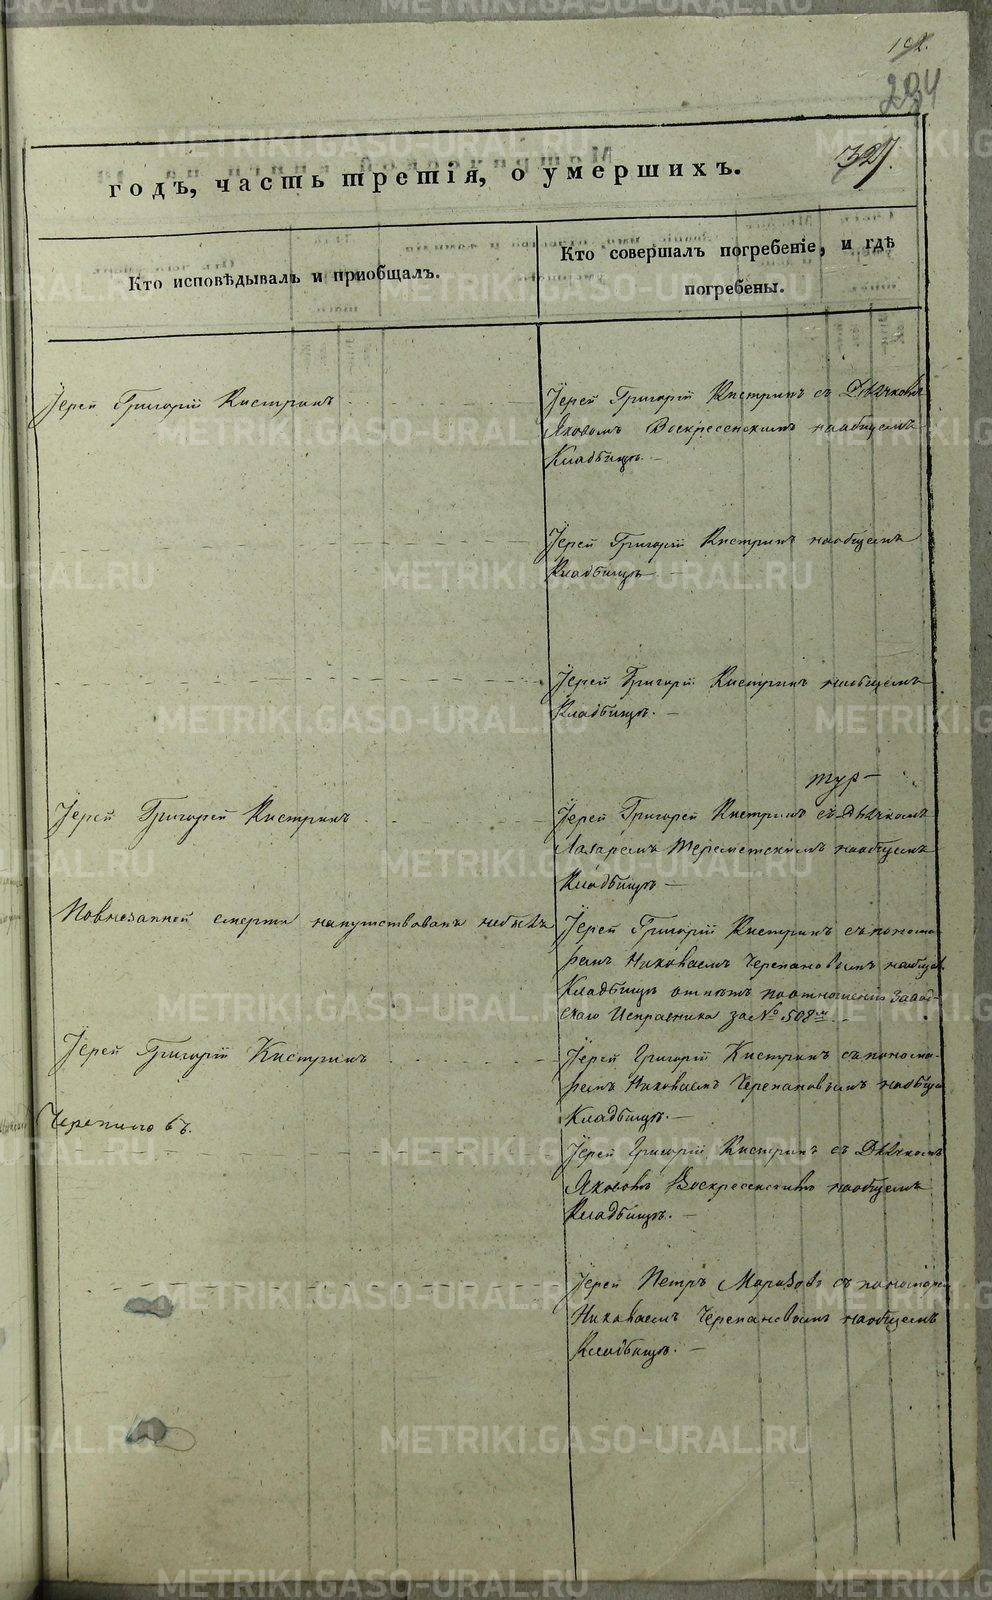 192.
234
327.
годъ, часть третія, о умершихъ.
Кто исповѣдывалъ и пріобщалъ.
Кто совершалъ погребеніе, и гдѣ
погребены.
Іерей Григорій Кистринъ
Іерей Григорій Кистринъ съ Дьячкомъ
Яковомъ Воскресенскимъ наобщемъ
Кладбищѣ.
Іерей Григорій Кистринъ наобщемъ
Кладбищѣ
Іерей Григорій Кистринъ наобщемъ
Кладбищѣ.
Іерей Григорей Кистринъ
Іерей Григорей Кистринъ съ Дьячкомъ
Лазаремъ наобщемъ
Кладбищѣ
Повнезапной смерти напутствованъ небылъ
Іерей Григорій Кистринъ съ понома-
ремъ Николаемъ Черепановымъ наобщем
Кладбищѣ отпѣтъ поотношенію Завод-
скаго Исправника за № 508м
Іерей Григорій Кистринъ
Іерей Григорій Кистринъ съ понома-
ремъ Николаемъ Черепановымъ наобще
Кладбищѣ.
Іерей Григорій Кистринъ съ Дьячкомъ
Яковомъ Воскресенскимъ наобщемъ
Кладбищѣ.
Іерей Петръ Морозовъ съ пономарем
Николаемъ Черепановымъ наобщемъ
Кладбищѣ.
METRIKI.GASO-URAL.RU